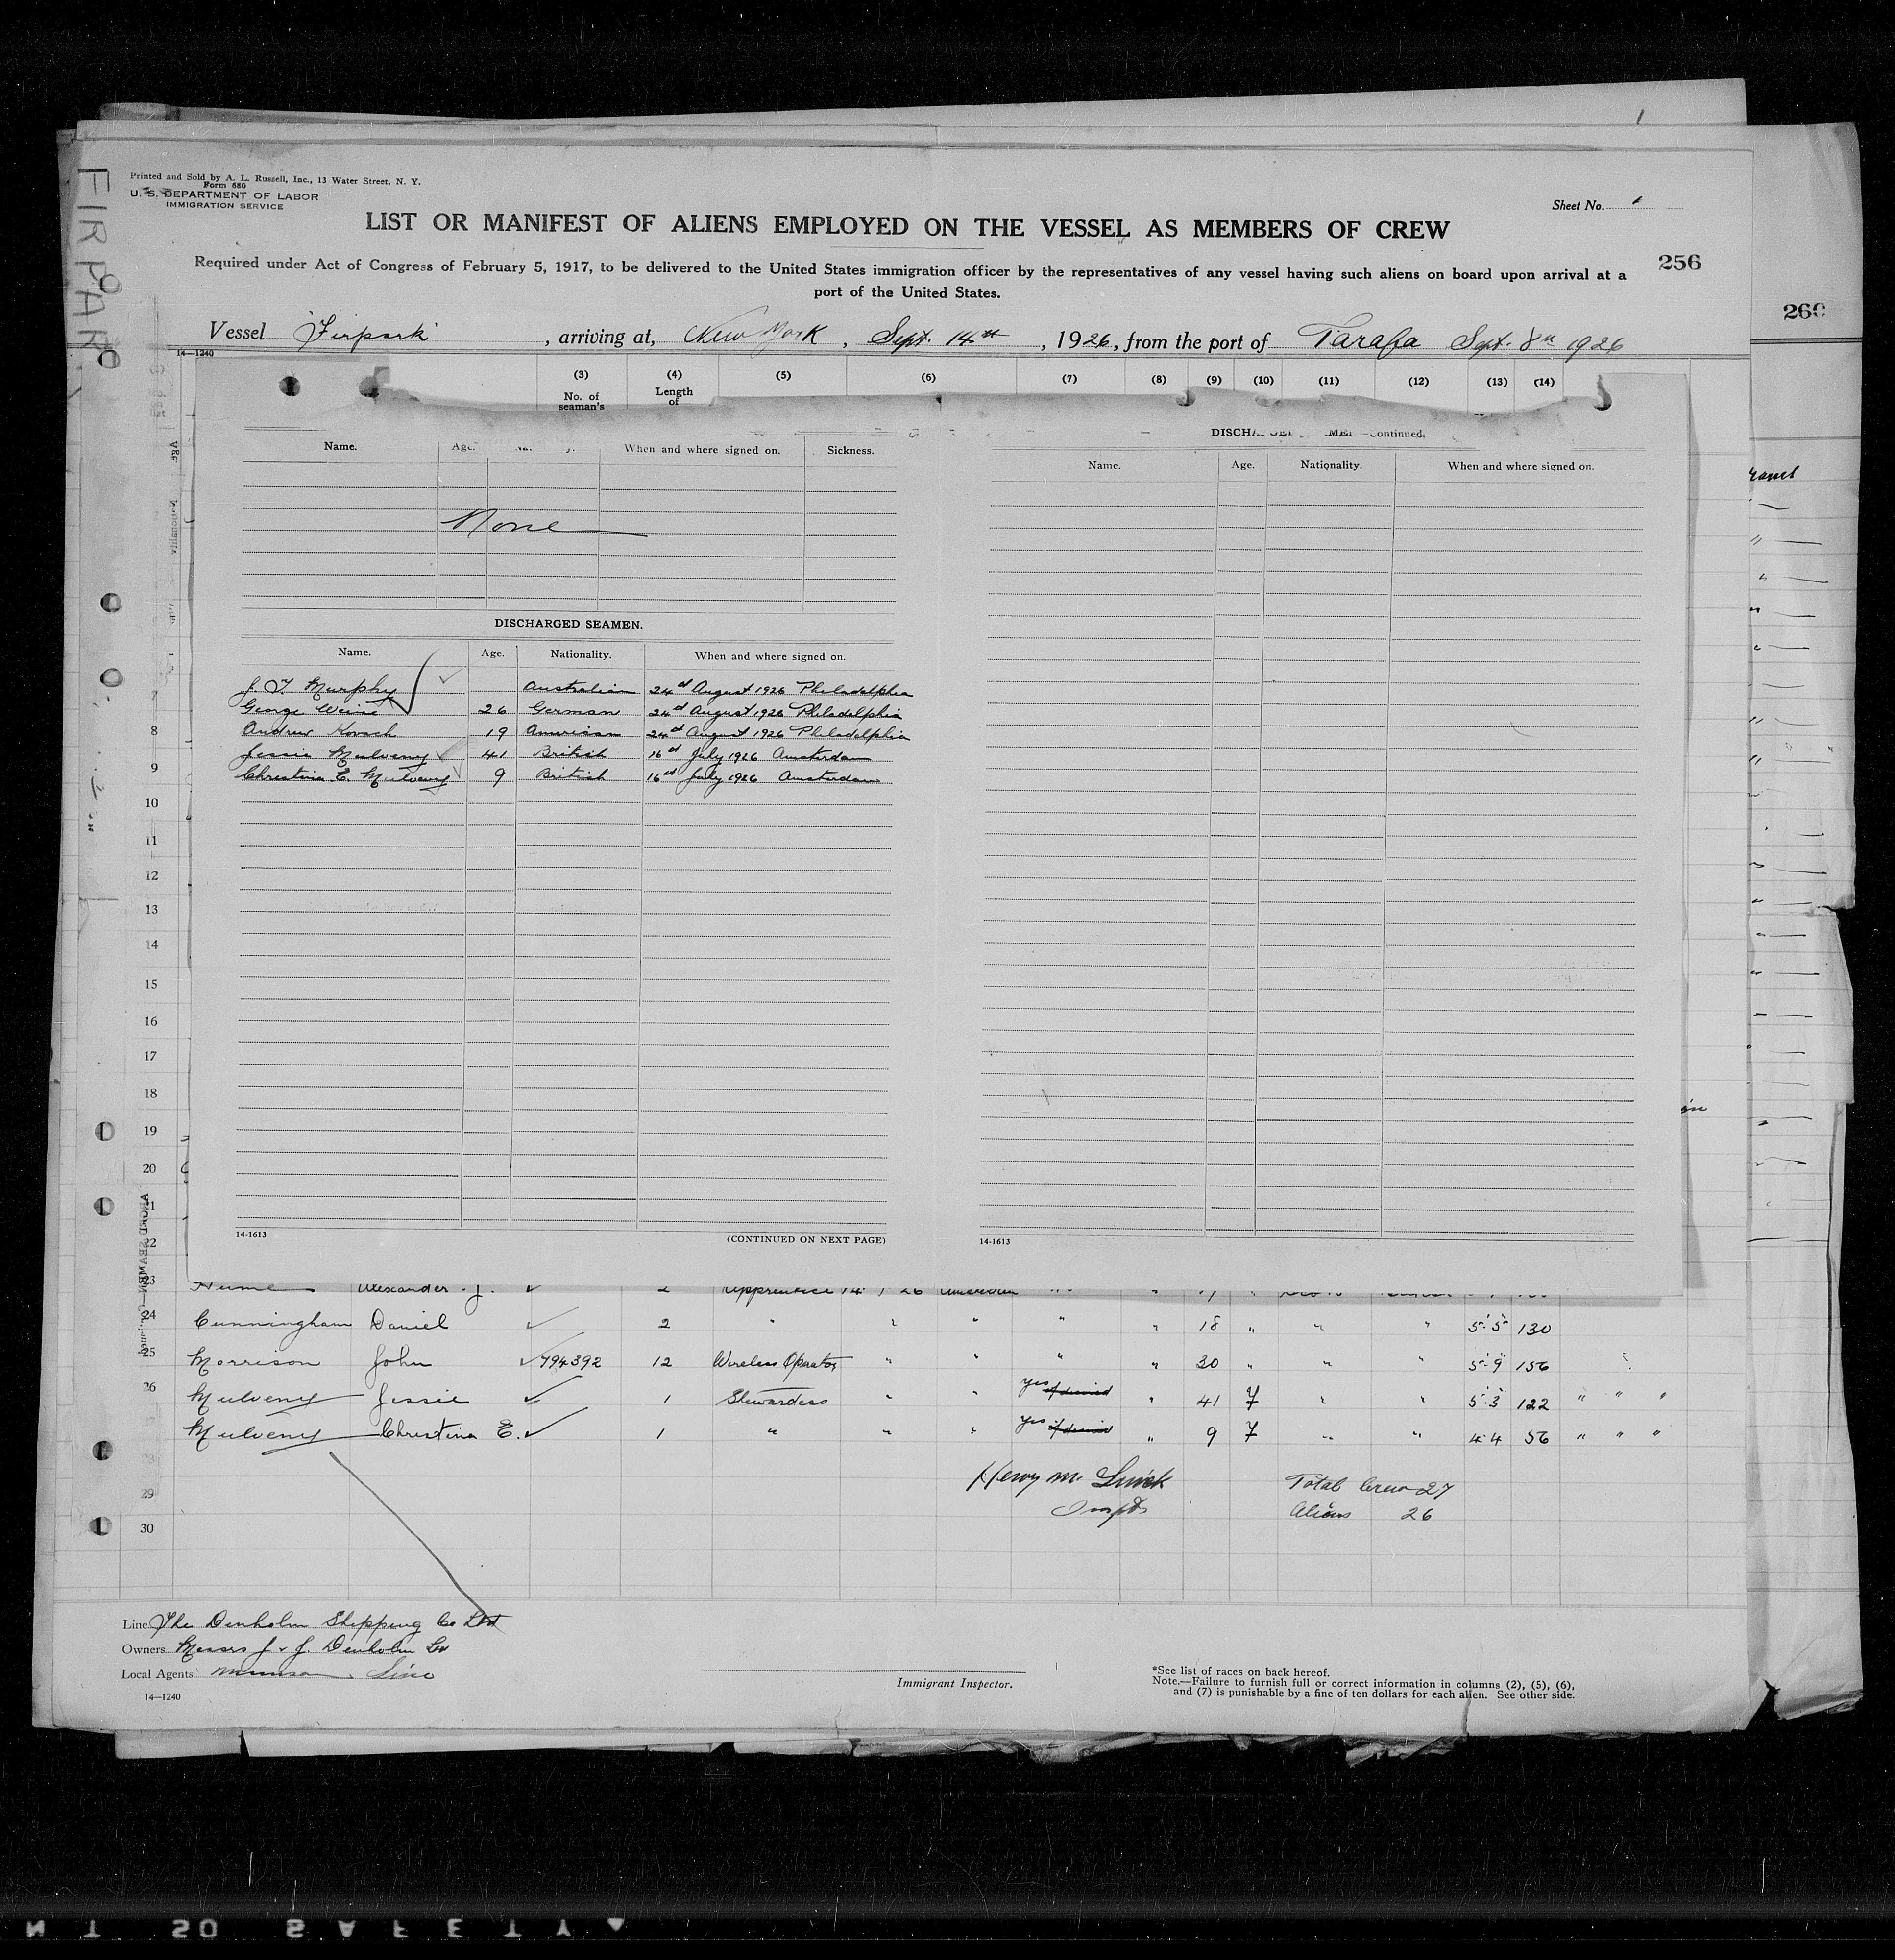 FIRPARK
Printed and Sold by A. L. Russell, Inc., 13 Water Street, N. Y.
Form 680
U. S. DEPARTMENT OF LABOR
IMMIGRATION SERVICE
Sheet No.
LIST OR MANIFEST OF ALIENS EMPLOYED ON THE VESSEL AS MEMBERS OF CREW
256
260
Required under Act of Congress of February 5, 1917, to be delivered to the United States immigration officer by the representatives of any vessel having such aliens on board upon arrival at a
port of the United States.
Vessel "Firpark", arriving at, New York, Sept. 14th, 1926, from the port of Tarafa Sept. 8th 1926
14—1240
(3) (4) (5) (6) (7) (8) (9) (10) (11) (12) (13) (14)
No. of seaman's Length of
Name. Age. When and where signed on. Sickness.
None
DISCHARGED SEAMEN.
Name. Age. Nationality. When and where signed on.
J. T. Murphy Australian 24d August 1926 Philadelphia
George Weine 26 German 24d August 1926 Philadelphia
Andrew Kovach 19 American 24d August 1926 Philadelphia
Jessie Mulveny 41 British 16d July 1926 Amsterdam
Christina E. Mulveny 9 British 16d July 1926 Amsterdam
14-1613 (CONTINUED ON NEXT PAGE)
—Continued.
Name. Age. Nationality. When and where signed on.
14-1613
7
8
9
10
11
12
13
14
15
16
17
18
19
20
21
22
23 Hume Alexander J. 2 Apprentice
24 Cunningham Daniel 2 " " " " " 18 " " " 5'5 130
25 Morrison John 794392 12 Wireless Operator " " " " 30 " " " 5'9 156
26 Mulveny Jessie 1 Stewardess " " yes " 41 F " " 5'3 122 " " "
Mulveny Christina E. 1 " " " yes " 9 F " " 4'4 56 " " "
29
30
Total Crew 27
Aliens 26
Line The Denholm Shipping Co Ltd
Owners Messrs J. & J. Denholm Ltd
Local Agents Munson Line
14—1240
Immigrant Inspector.
*See list of races on back hereof.
Note.—Failure to furnish full or correct information in columns (2), (5), (6),
and (7) is punishable by a fine of ten dollars for each alien. See other side.
SAFETY